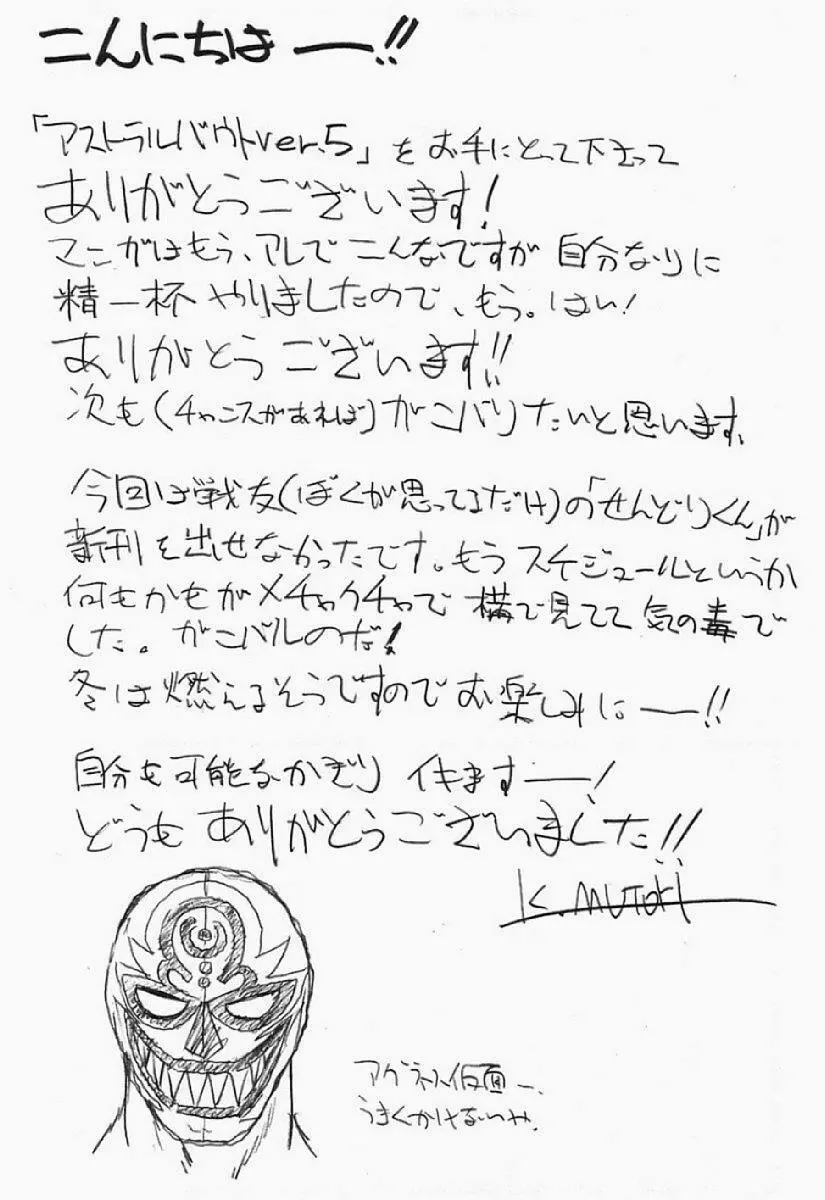 こんにちはー!!
「アストラルバウトver.5」をお手にとって下さって
ありがとうございます!
マンガはもう、アレでこんなですが 自分なりに
精一杯 やりましたので、もう。はい!
ありがとうございます!!
次も(チャンスがあれば)ガンバりたいと思います。
今回は戦友(ぼくが思ってるだけ)の「せんどりくん」が
新刊を出せなかったです。もうスケジュールというか
何もかもがメチャクチャで 横で見てて 気の毒で
した。ガンバルのだ!
冬は燃えるそうですのでお楽しみにー!!
自分も可能なかぎり イキますー!
どうもありがとうございました!!
K.MUTOKI
アグネス仮面ー。
うまくかけないや。